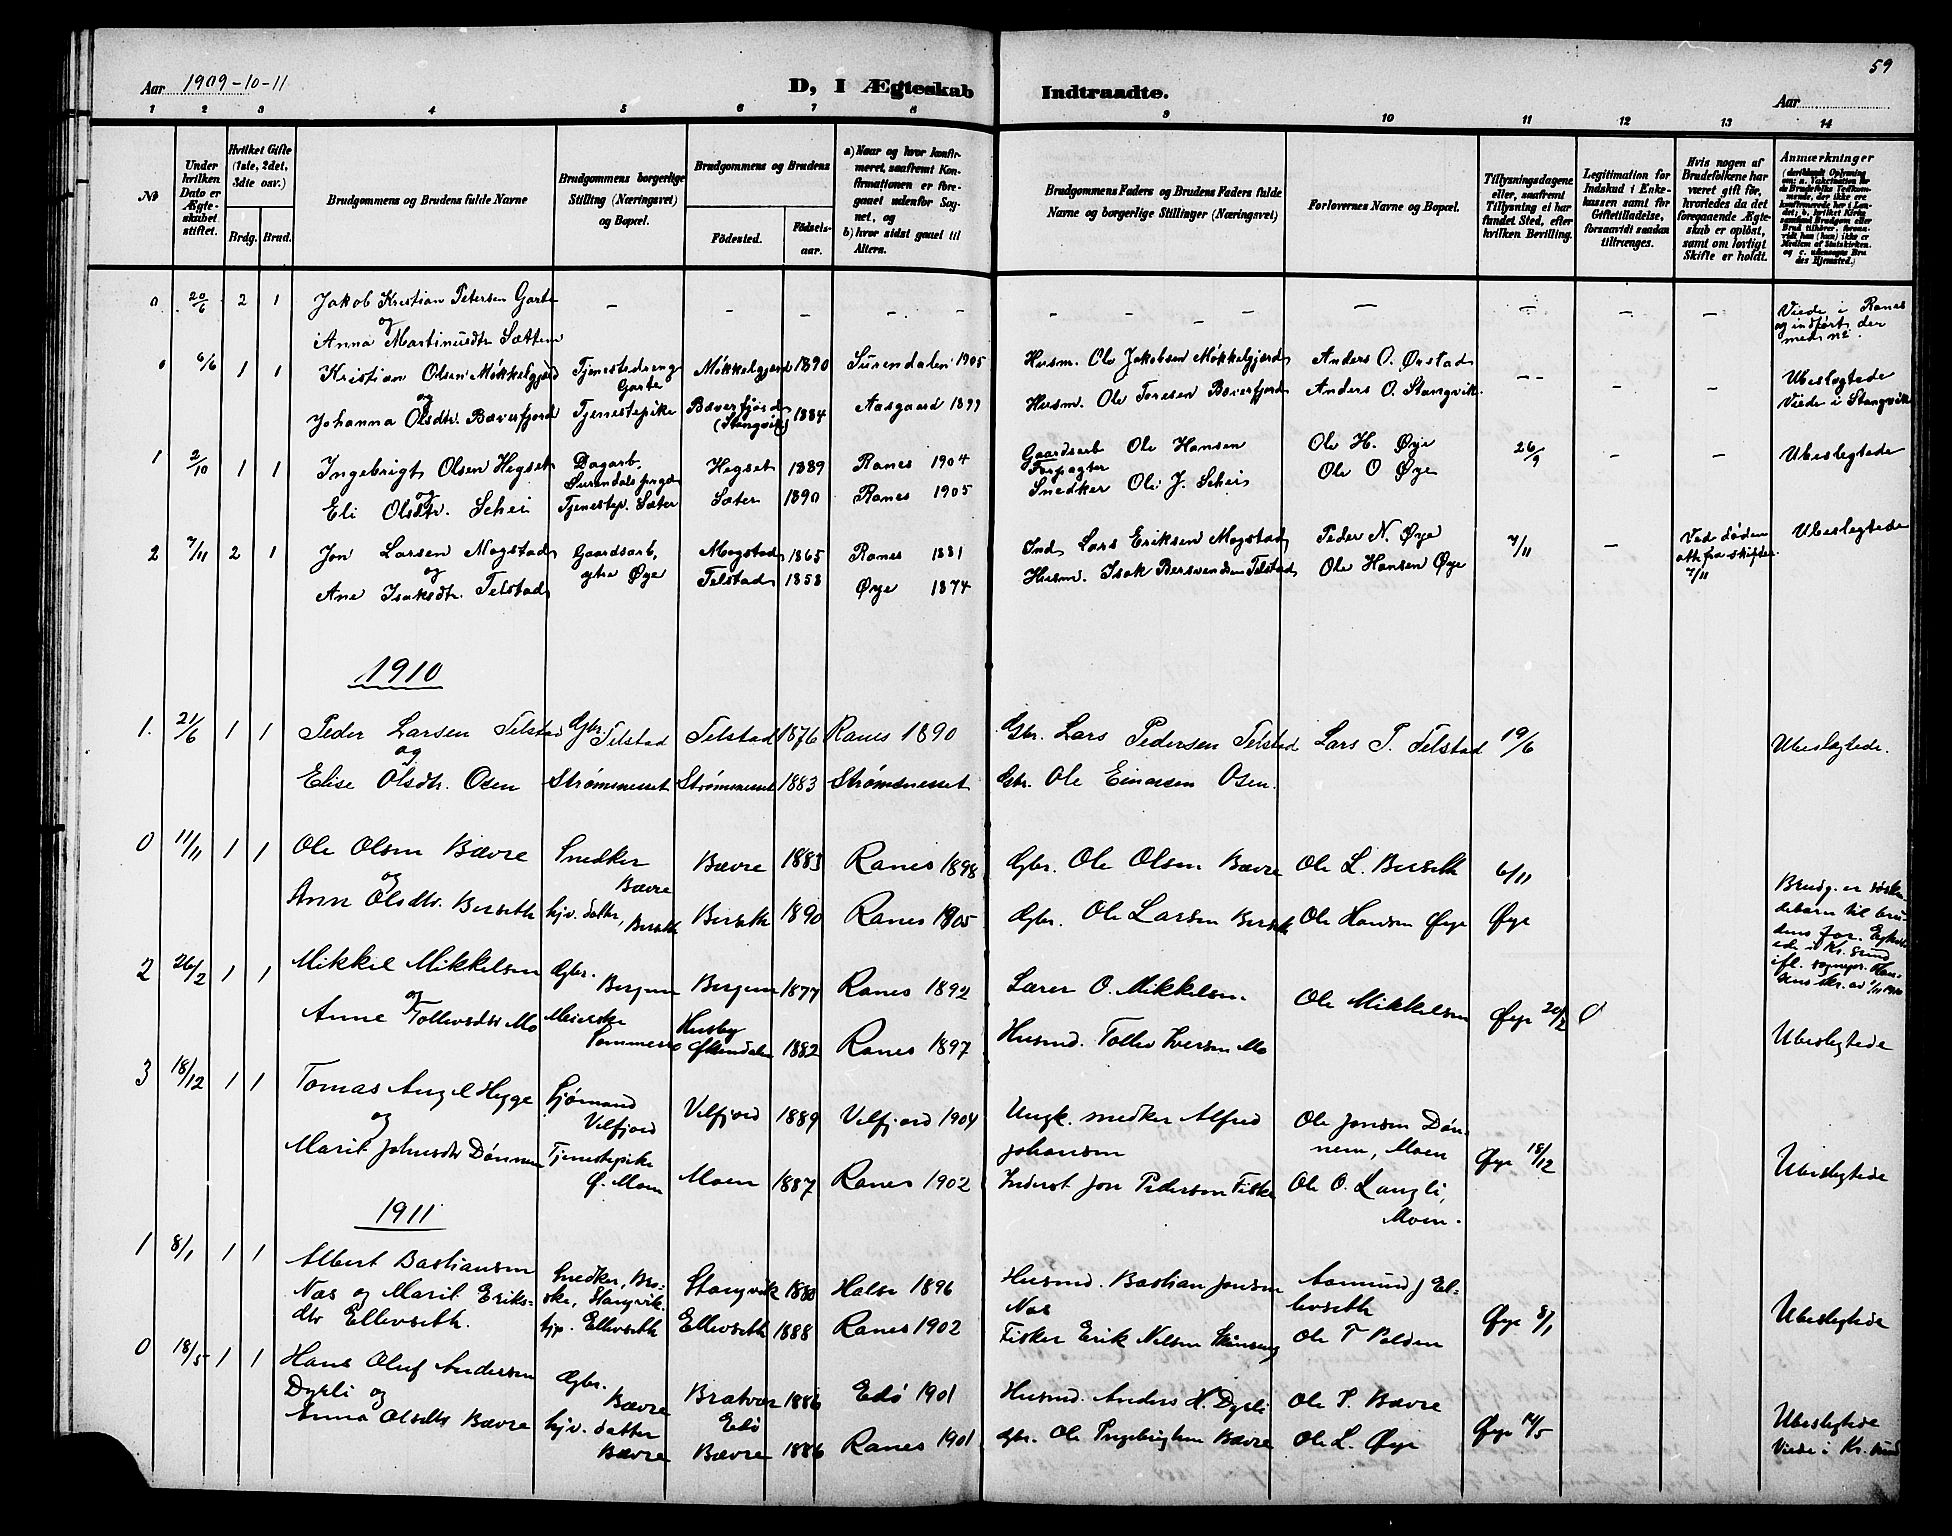 59
Aar 1909-10-11
D, I Ægteskab Indtraadte.
Aar
1 2 3 4 5 6 7 8 9 10 11 12 13 14
No
Under hvilken Dato er Ægteskabet stiftet.
Hvilket Gifte (1ste, 2det, 3die osv.)
Brdg. Brud.
Brudgommens og Brudens fulde Navne
Brudgommens borgerlige Stilling (Næringsvei) og Bopæl.
Brudgommens og Brudens
Fødested. Fødselsaar.
a) Naar og hvor konfirmeret, saafremt Konfirmationen er foregaaet udenfor Sognet, og
b) hvor sidst gaaet til Alters.
Brudgommens Faders og Brudens Faders fulde Navne og borgerlige Stillinger (Næringsvei)
Forlovernes Navne og Bopæl.
Tillysningsdagene eller, saafremt Tillysning ei har fundet Sted, efter hvilken Bevilling.
Legitimation for Indskud i Enkekassen samt for Giftetilladelse, forsaavidt saadan tiltrænges.
Hvis nogen af Brudefolkene har været gift før, hvorledes da det foregaaende Ægteskab er opløst, samt om lovligt Skifte er holdt.
Anmærkninger
0 20/6 2 1 Jakob Kristian Petersen Garte - - - - - - - - - - - Viede i Ranes
og og indført der
Anna Martinusdtr Sættem med n2.
0 6/6 1 1 Kristian Olsen Møkkelgjerd Tjenestedreng Garte Møkkelgjerd 1890 Surendalen 1905 Husm. Ole Jakobsen Møkkelgjerd Anders O. Ørstad - - - - Ubeslegtede
og
Johanna Olsdtr. Bæverfjord Tjenestepike Bæverfjord (Stangvik) 1884 Aasgaard 1899 Husm. Ole Toresen Bæverfjord Anders O. Stangvik Viede i Stangvik
1 2/10 1 1 Ingebrigt Olsen Hegset Dagarb. Hegset 1889 Ranes 1904 Gaardsarb Ole Hansen Ole H. Øye 26/9 - - Ubeslegtede
og Forpagter
Eli Olsdtr. Schei Tjenestep. Sæter Sæter 1890 Ranes 1905 Snedker Ole J. Schei Ole O Øye
2 7/11 2 1 Jon Larsen Mogstad Gaardsarb, Mogstad 1865 Ranes 1881 Ind. Lars Eriksen Mogstad Peder N. Øye 7/11 - Ved døden Ubeslegtede
og ytre Øye att fra skifter
Ane Isaksdtr. Telstad Telstad 1858 Øye 1874 Husm. Isak Bersvendsen Telstad Ole Hansen Øye 7/11
1910
1. 21/6 1 1 Peder Larsen Telstad Gbr. Telstad Telstad 1876 Ranes 1890 Gbr. Lars Pedersen Telstad Lars P. Telstad 19/6 Ubeslegtede.
og
Elise Olsdtr. Osen Strømsnesset Strømsnesset 1883 Strømsnesset Gbr. Ole Einarsen Osen.
0 11/11 1 1 Ole Olsen Bævre Snedker Bævre Bævre 1883 Ranes 1898 Gbr. Ole Olsen Bævre Ole L. Berseth 6/11 Brudg. er søsken-
og debarn til bru-
Anne Olsdtr. Berseth hjv. datter, Berseth Berseth 1890 Ranes 1905 Gbr. Ole Larsen Berseth Ole Hansen Øye Øye dens far.
2 26/2 1 1 Mikkel Mikkelsen Gbr. Bergem Bergem 1877 Ranes 1892 Lærer O. Mikkelsen. Ole Mikkelsen Øye 20/2
og
Anne Tollevsdtr Mo Meierske Husby 1882 Ranes 1897 Husmd. Tollev Iversen Mo Ubeslegtede
3 18/12 1 1 Tomas Angel Hegge Sjømand Velfjord Velfjord 1889 Velfjord 1904 Ungk. snedker Alfred Johansen Ole Jonsen Dønnem, Moen Øye 18/12 Ubeslegtede
og
Marit Johnsdtr Dønnem Tjenestepike Ø. Moen Moen 1887 Ranes 1902 Inderst Jon Pedersen Fiske Ole O. Langli, Moen.
1911
1 8/1 1 1 Albert Bastiansen Snedker, Bro- Stangvik 1880 Halse 1896 Husmd. Bastian Jonsen Aamund J El-
Nas og Marit Eriks- ske, Stangvik. Nas levseth Øye 8/1 Ubeslegtede
dtr Ellevseth. hjp. Ellevseth Ellevseth 1888 Ranes 1902 Fisker Erik Nelsen Ole T Polden
0 18/5 1 1 Hans Oluf Andersen Gbr. Bævre Bratvær Edø 1886 Edø 1901 Husmd. Anders H. Dyrli Ole P. Bævre
Dyrli og Øye 14/5 Ubeslegtede
Anna Olsdtr Bævre hjv. datter Bævre Bævre 1886 Ranes 1901 Gbr. Ole Ingebrigtsen Bævre Ole L. Øye Viede i Kr. sund